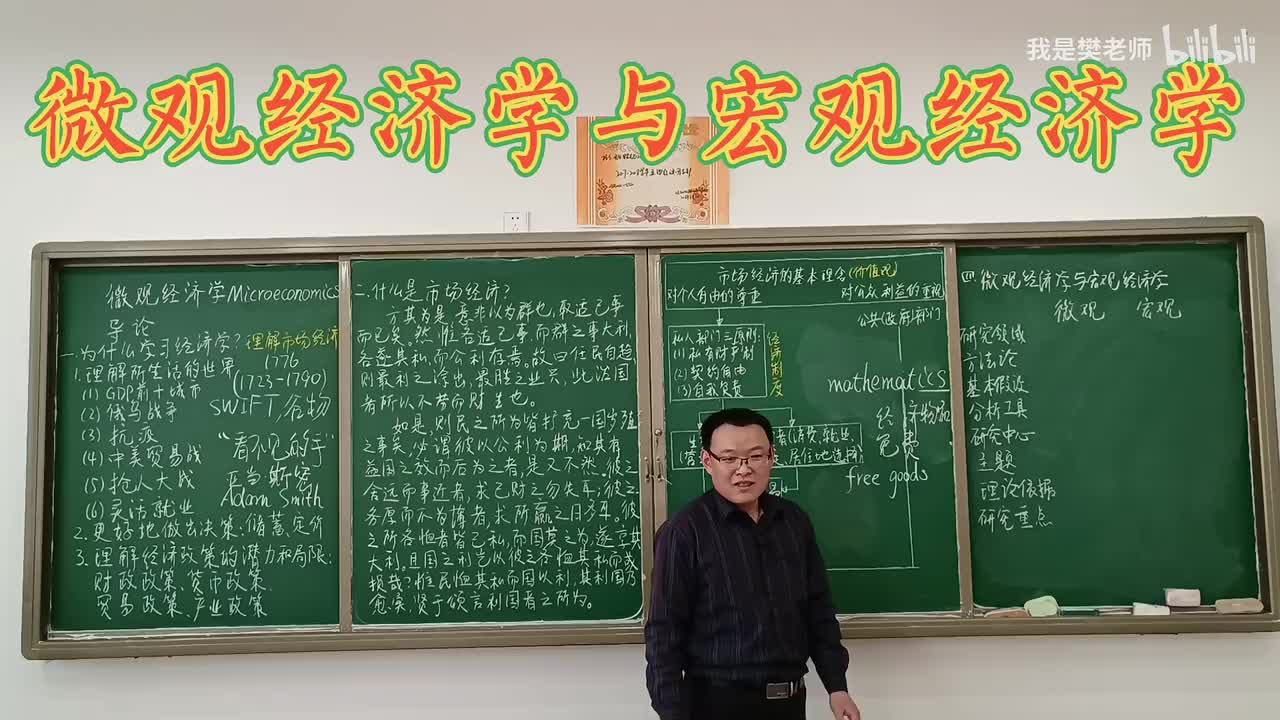 我是樊老师 bilibili
微观经济学与宏观经济学
微观经济学Microeconomics
导论
一.为什么学习经济学?理解市场经济
1.理解所生活的世界 1776
(1)GDP前十城市 (1723-1790)
(2)俄乌战争 SWIFT谷物
(3)抗疫
(4)中美贸易战 "看不见的手"
(5)抢人大战 亚当斯密
(6)灵活就业 Adam Smith
2.更好地做出决策.储蓄、定价
3.理解经济政策的潜力和局限:
财政政策、货币政策、
贸易政策、产业政策
二.什么是市场经济?
方其为是,意非以为群也,取适己事
而已矣。然,惟各适己事,而群之事大利,
各遂其私,而公利存焉。故曰任民自趋,
则最利之涂出,最胜之业兴,此法国
者所以不劳而财生也。
如是,则民之所为皆扩充一国岁殖
之事矣,必谓彼以公利为期,
益国之效而后为之者,是又不然。彼之
舍远而事近者,求己财之勿失耳;彼之
务厚而不为薄者,求所赢之日多耳。彼
之所各恤者皆己私,而国莫之为,遂享其
大利。且国之利岂以彼之各恤其私而或
损哉?惟民恤其私而国以利,其利国乃
愈实,贤于颂言利国者之所为。
市场经济的基本理念(价值观)
对个人自由的尊重 对公众利益的重视
公共(政府)部门
私人部门三原则:
(1)私有财产制
(2)契约自由
(3)自我负责
经济制度
mathematics
免费
free goods
四.微观经济学与宏观经济学
微观 宏观
研究领域
方法论
基本假设
分析工具
研究中心
主题
理论依据
研究重点